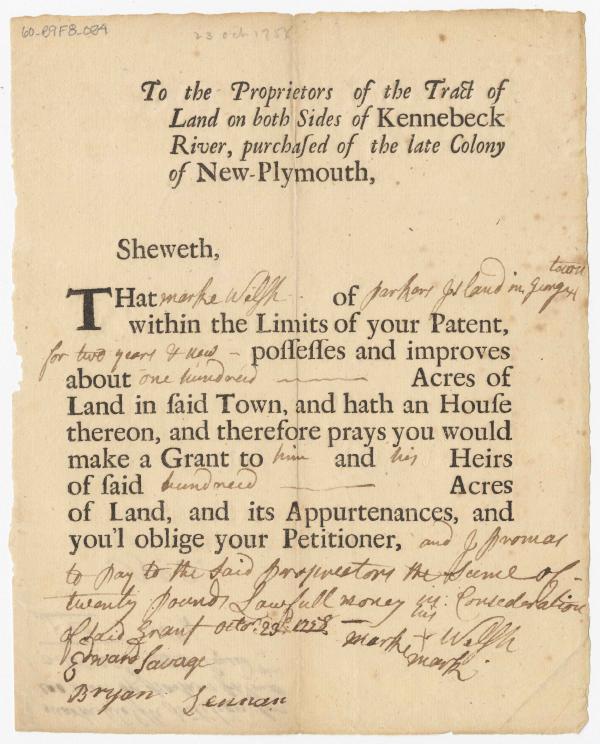 60-P9F8-024
23 Oct 1758
To the Proprietors of the Tract of
Land on both Sides of Kennebeck
River, purchaſed of the late Colony
of New-Plymouth,
Sheweth,
THat marke Welſh of parkers Island in George town
within the Limits of your Patent,
for two years & now – poſſeſſes and improves
about one hundreed —— Acres of
Land in ſaid Town, and hath an Houſe
thereon, and therefore prays you would
make a Grant to him and his Heirs
of ſaid hundreed —— Acres
of Land, and its Appurtenances, and
you'l oblige your Petitioner, and I promas
to pay to the Said propreetors the Sume of
twenty pounds Lawfull money in Consederation
of Said Grant Octor. 23d. 1758
his
marke + Welſh
mark
Edward Savage
Bryan Lennan